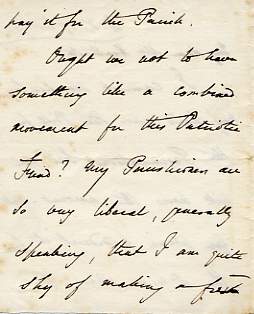 pay it for the Parish.
Ought we not to have
something like a combined
movement for this Patriotic
Fund? My Parishioners are
so very liberal, generally
speaking, that I am quite
shy of making a fresh